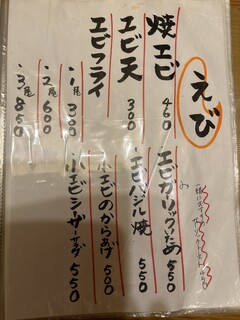 えび
焼エビ 460
エビ天 300
エビフライ
・1尾 300
・2尾 600
・3尾 850
エビガーリックいため 550
エビバジル焼 550
小エビのからあげ 500
小エビシーザーサラダ 550